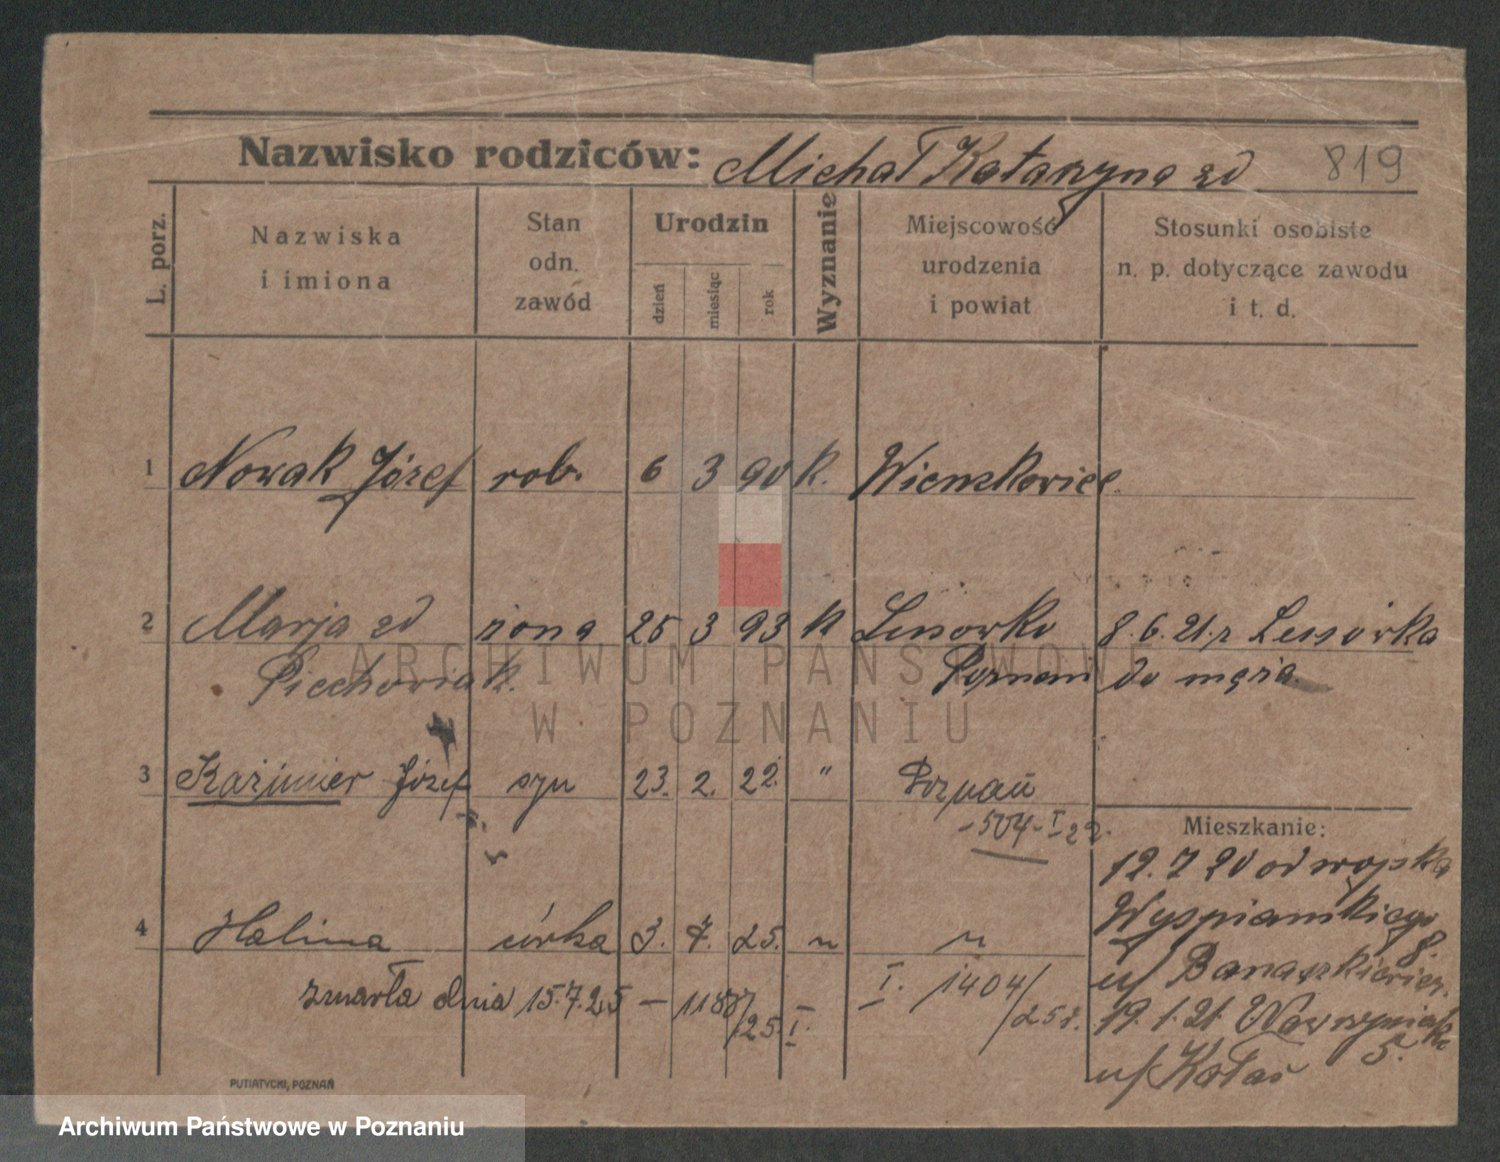 Nazwisko rodziców: Michał Katarzyna zd 819
L. porz.
Nazwiska i imiona
Stan odn. zawód
Urodzin
dzień miesiąc rok
Wyznanie
Miejscowość urodzenia i powiat
Stosunki osobiste n. p. dotyczące zawodu i t. d.
1 Nowak Józef rob. 6 3 90 k.
2 Marja zd żona 25 3 93 k Lussowko 8.6.21. z Lussowka
Piechowiak. Poznam do męża.
3 Kaźimier Józef syn 23. 2. 22. " Poznań
-504-I 22.
Mieszkanie:
12.7 20 od wojska
Wyspianskiego 8.
4 Halina córka 3. 7. 25. " "
u/ Banaszkiewicz.
zmarła dnia 15.7.25 – 1188/25 I. I. 1404/25
19.1.21. Wawrzyniaka 5.
u/
PUTIATYCKI, POZNAŃ
ARCHIWUM PAŃSTWOWE
W POZNANIU
Archiwum Państwowe w Poznaniu